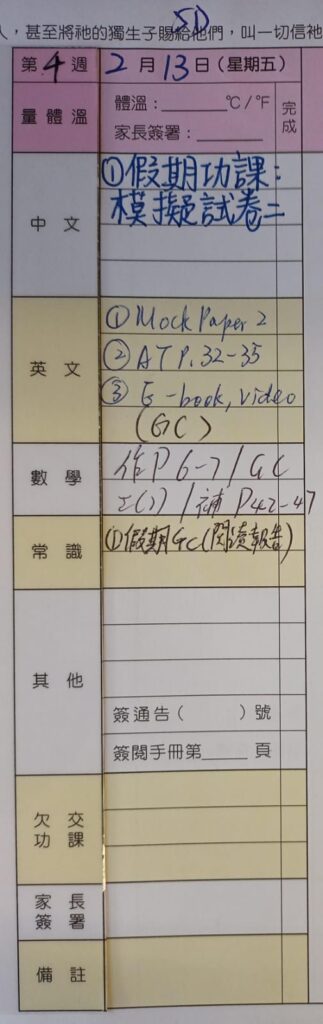 5D
人，甚至將祂的獨生子賜給他們，叫一切信祂
第 4 週 2 月 13 日 (星期五)
量體溫 體溫：______℃/℉ 完成
家長簽署：______
中文 ①假期功課：
模擬試卷二
英文 ① Mock Paper 2
② AT P.32-35
③ E-book, video
(GC)
數學 作 P 6-7 / GC
工(7) / 補 P42-47
常識 ①假期GC(閱讀報告)
其他
簽通告 ( ) 號
簽閱手冊第____頁
欠交功課
家長簽署
備註